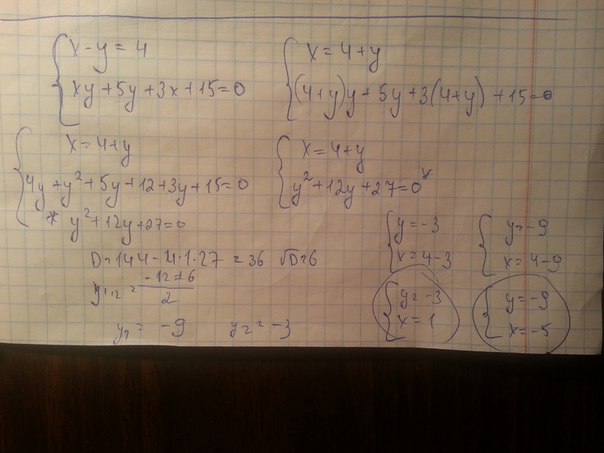 x-y=4
xy+5y+3x+15=0
x=4+y
(4+y)y+5y+3(4+y)+15=0
x=4+y
4y+y²+5y+12+3y+15=0
x=4+y
y²+12y+27=0*
* y²+12y+27=0
D=144-4·1·27=36 √D=6
y₁,₂=(-12±6)/2
y₁=-9 y₂=-3
y=-3
x=4-3
y=-9
x=4-9
y=-3
x=1
y=-9
x=-5